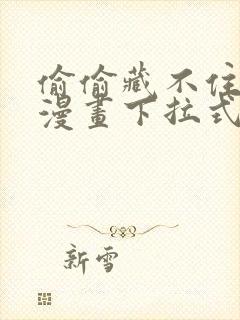 偷偷藏不住
漫畫下拉式
新雪